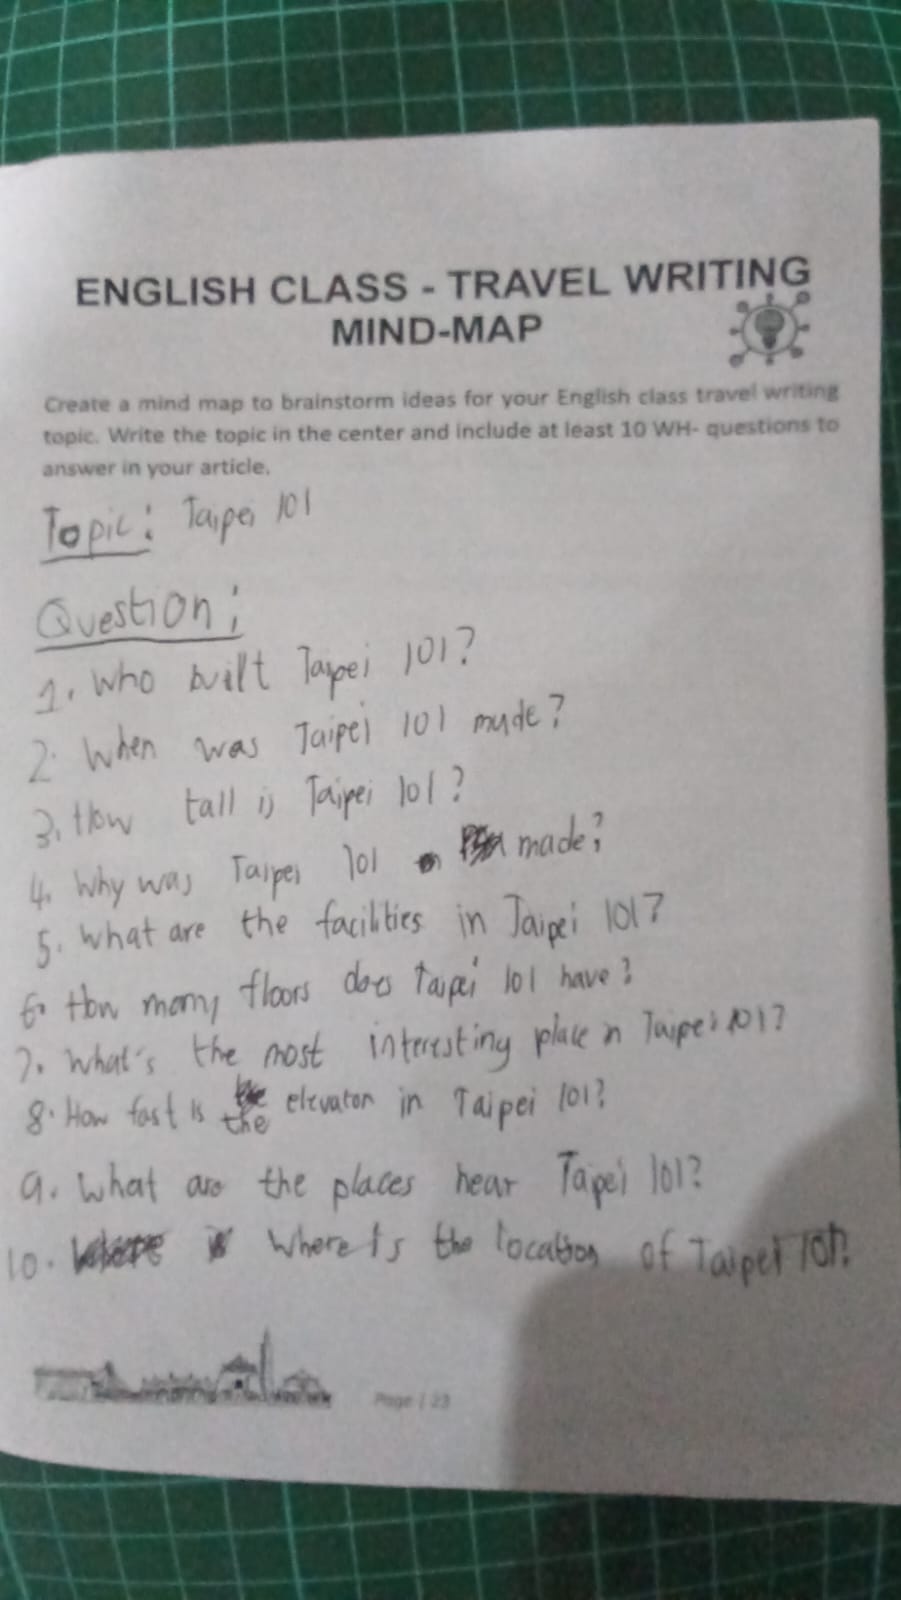 ENGLISH CLASS - TRAVEL WRITING
MIND-MAP
Create a mind map to brainstorm ideas for your English class travel writing
topic. Write the topic in the center and include at least 10 WH- questions to
answer in your article.
Topic: Taipei 101
Question:
1. Who built Taipei 101?
2. When was Taipei 101 made?
3. How tall is Taipei 101?
4. Why was Taipei 101 made?
5. What are the facilities in Taipei 101?
6. How many floors does Taipei 101 have?
7. What's the most interesting place in Taipei 101?
8. How fast is the elevator in Taipei 101?
9. What are the places near Taipei 101?
10. Where is the location of Taipei 101?
Page | 23